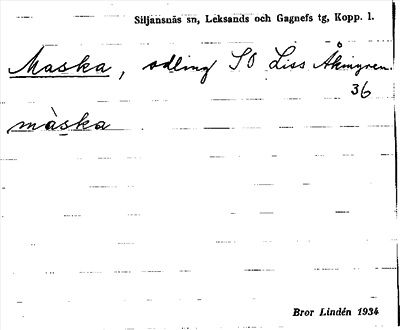 Siljansnäs sn, Leksands och Gagnefs tg, Kopp. l.
Maska, odling SO Liss Åkmyren
36
màska
Bror Lindén 1934